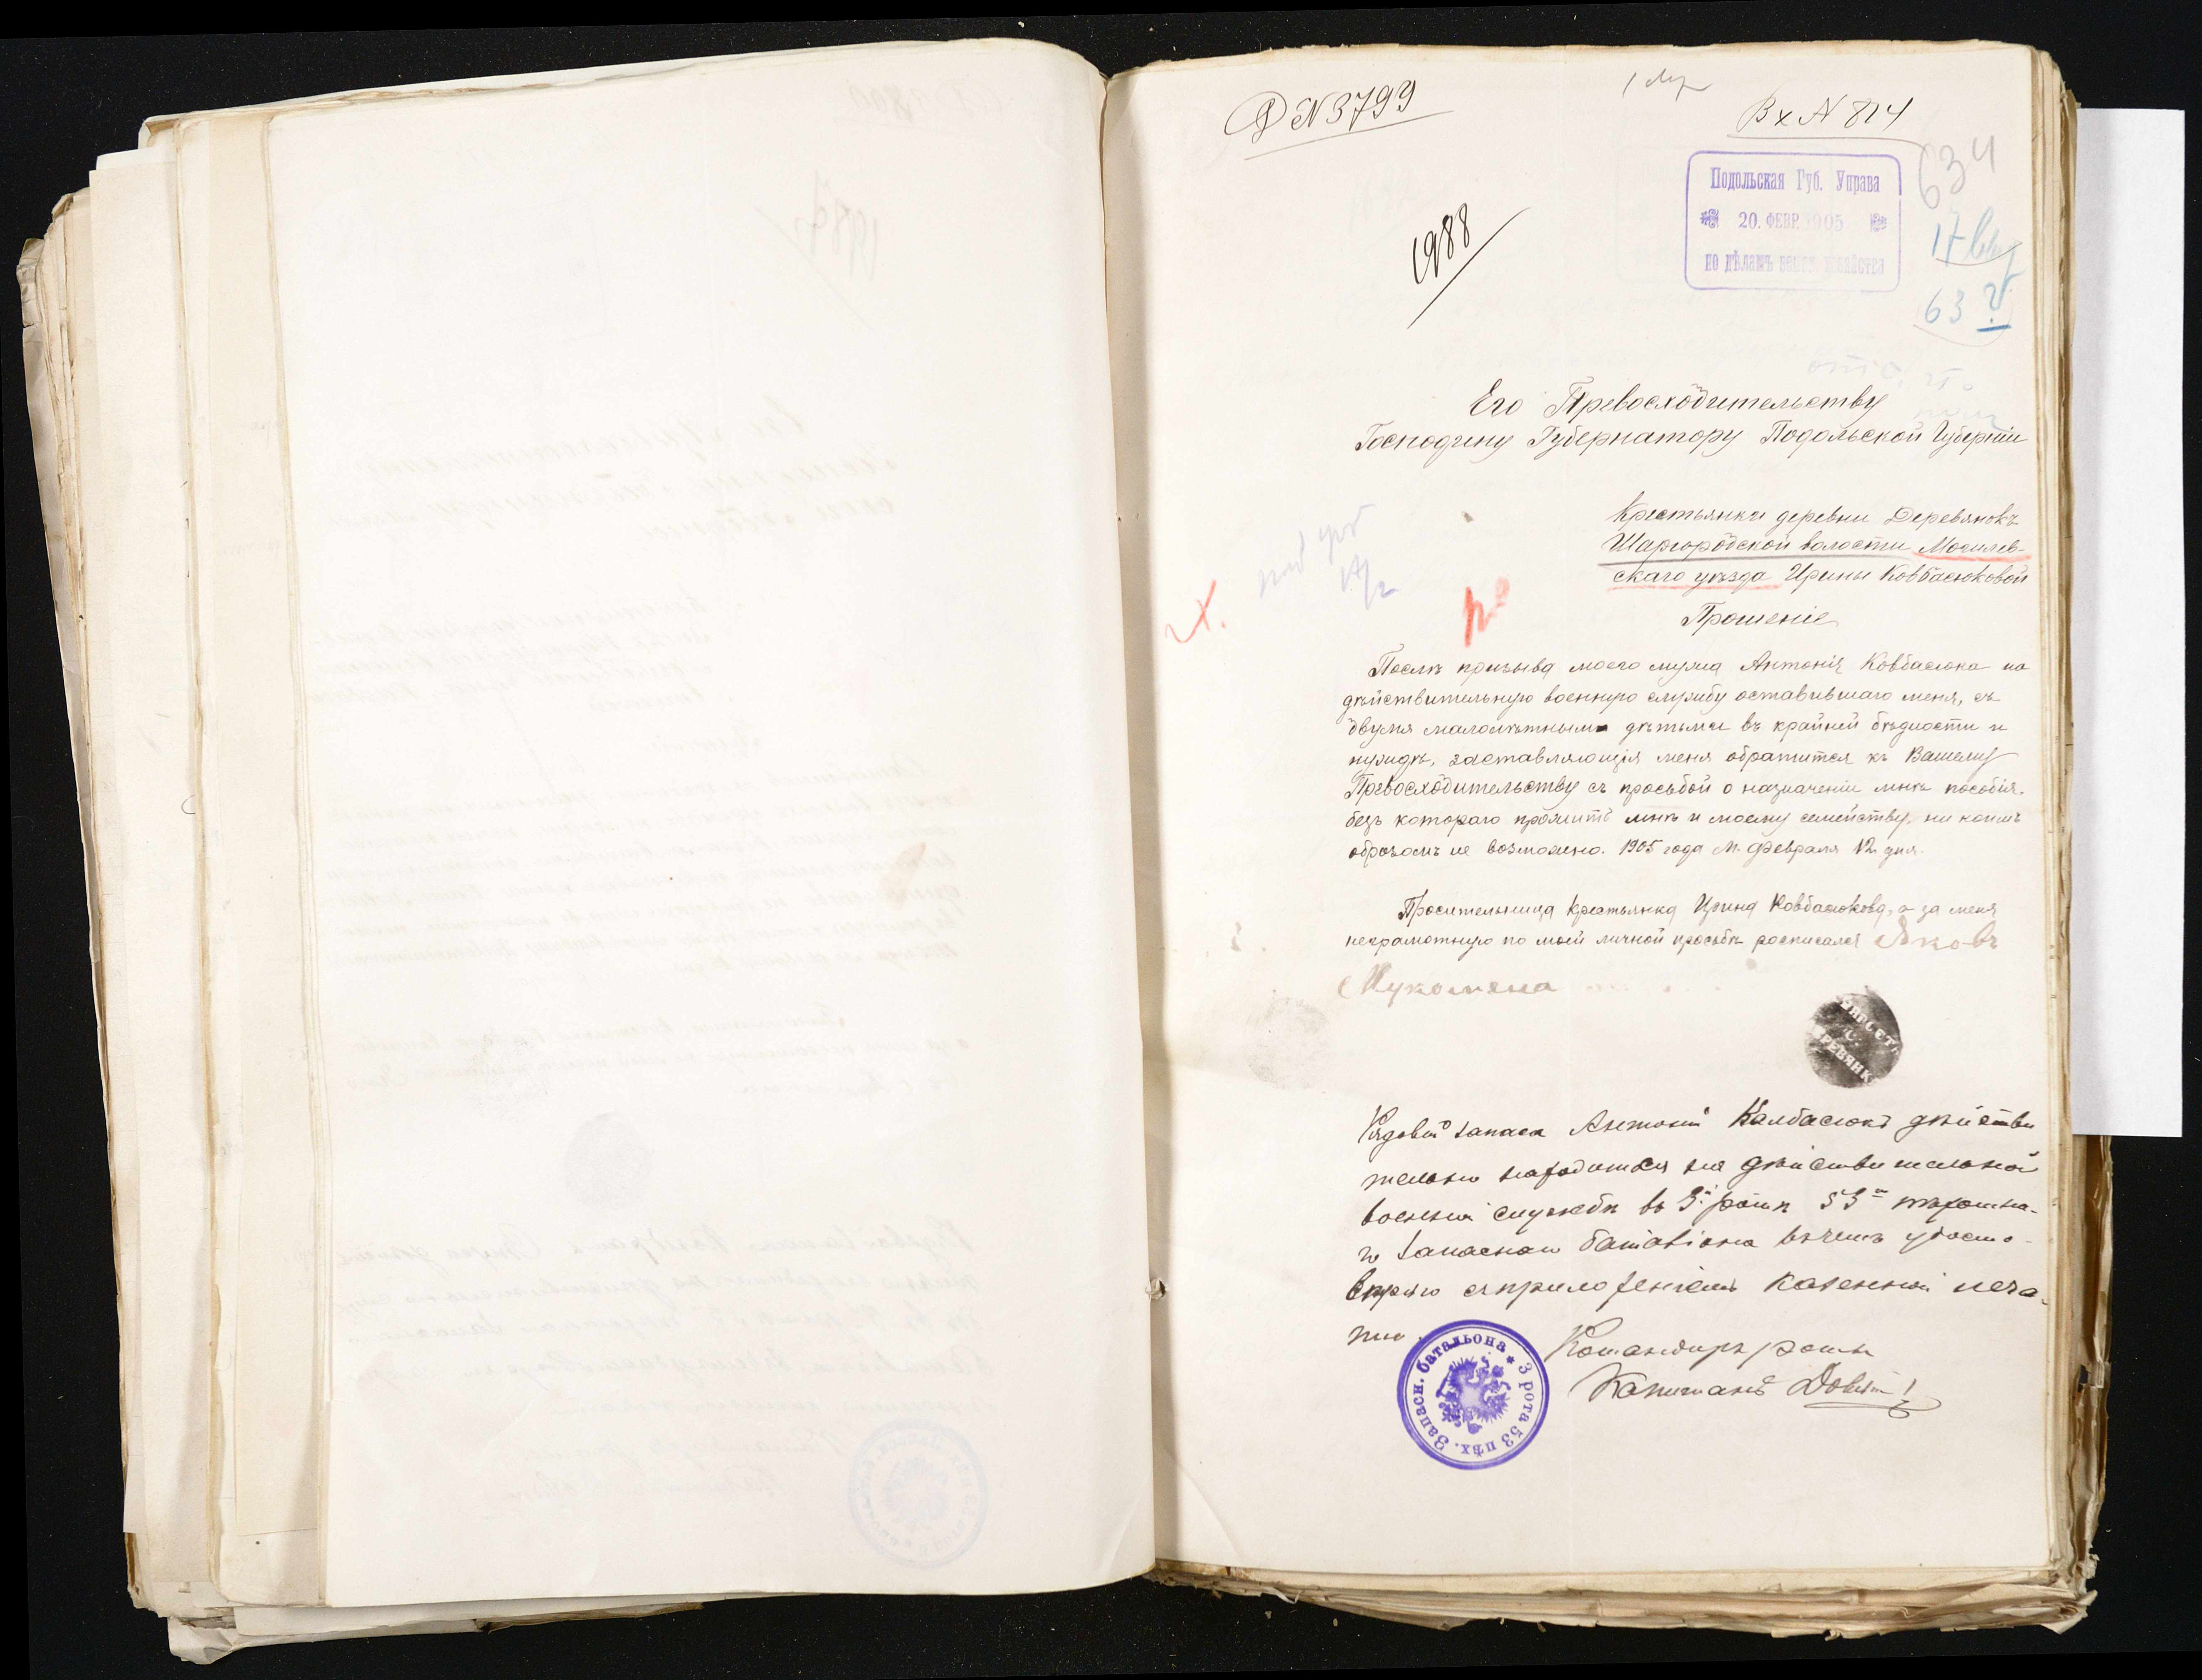 № 3799
Вх № 814
634
Подольская Губ. Управа
20. ФЕВР. 1905
по дѣламъ
63
1988
Его Превосходительству
Господину Губернатору Подольской Губерніи
Крестьянки деревни Деревянокъ
Шаргородской волости Могилев-
скаго уѣзда Ирины Ковбасюковой
Прошеніе
Послѣ призыва моего мужа Антонія Ковбасюка на
дѣйствительную военную службу оставившаго меня, съ
двумя малолѣтными дѣтьми въ крайней бѣдности и
нуждѣ, заставляющія меня обратится къ Вашему
Превосходительству съ просьбой о назначеніи мнѣ пособія.
безъ котораго прожить мнѣ и моему семейству, ни коимъ
образомъ не возможно. 1905 года М. Февраля 12 дня.
Просительница крестьянка Ирина Ковбасюкова, а за меня
неграмотную по моей личной просьбѣ росписался Яковъ
Рядовой запаса Антоній Колбасюкъ дѣйстви
тельно находится на дѣйствительной
военной службѣ въ 3й ротѣ 53го пѣхотна-
го запаснаго баталіона въ чемъ удосто-
вѣряю съ приложеніемъ казенной печа-
тью.
3 рота 53 пѣх. Запасн. батальона
Командиръ роты
Капитанъ